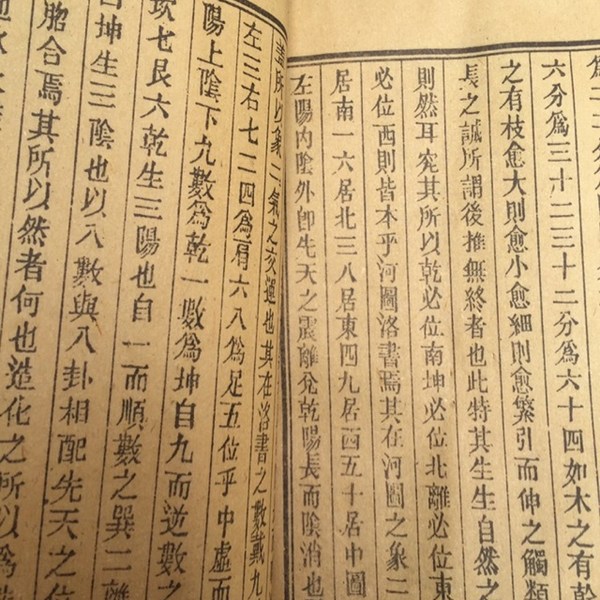 六分爲三十二三十二分爲六十四如木之有幹
之有枝愈大則愈小愈細則愈繁引而伸之觸類
長之誠所謂後推無終者也此特其生生自然之
則然耳究其所以乾必位南坤必位北離必位東
必位西則皆本乎河圖洛書焉其在河圖之象二
居南一六居北三八居東四九居西五十居中圖
左陽內陰外卽先天之震離兌乾陽長而陰消也
所以象二氣之交運也其在洛書之數戴九
左三右七二四爲肩六八爲足五位乎中虛而
陽上陰下九數爲乾一數爲坤自九而逆數之
坎七艮六乾生三陽也自一而順數之巽二離
坤生三陰也以八數與八卦相配先天之位
脗合焉其所以然者何也造化之所以爲